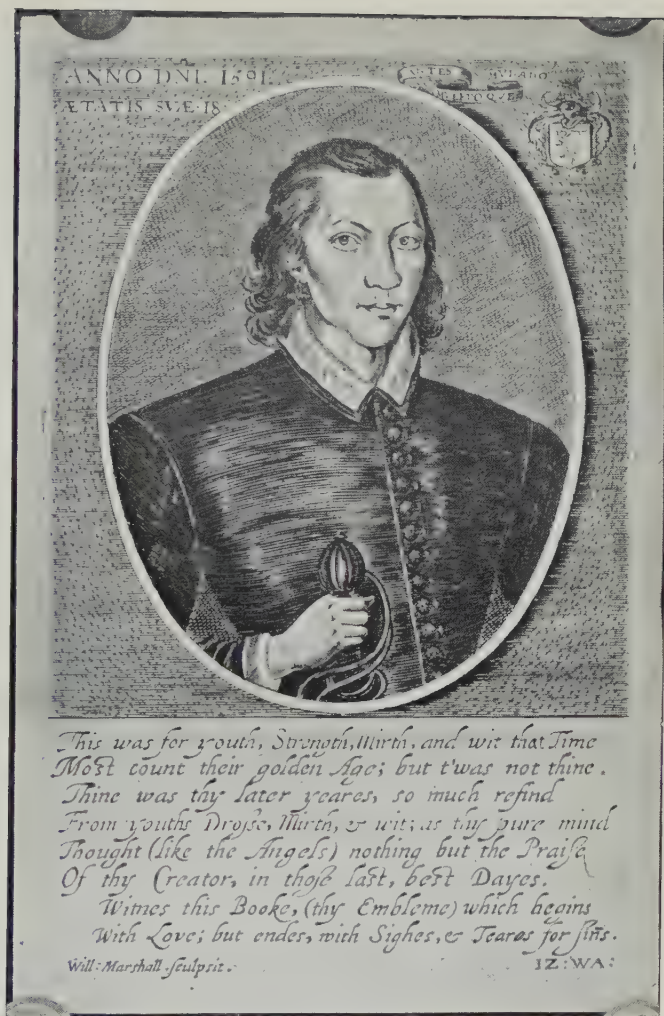 ANNO DNI. 1591.
ÆTATIS SVE. 18
ANTES MVDADO
This was for youth, Strength, Mirth, and wit that Time
Most count their golden Age; but t'was not thine.
Thine was thy later yeares, so much refind
From youths Drosse, Mirth, & wit; as thy pure mind
Thought (like the Angels) nothing but the Praise
Of thy Creator, in those last, best Dayes.
Witnes this Booke, (thy Embleme) which begins
With Love; but endes, with Sighes, & Teares for sins.
Will: Marshall sculpsit.
IZ: WA: